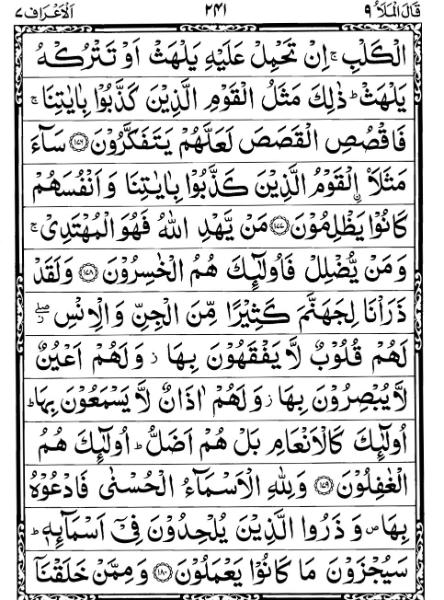 قَالَ الْمَلَأُ ٩ ٢٤١ اَلْاَعْرَاف ٧
الْكَلْبِ ۚ اِنْ تَحْمِلْ عَلَيْهِ يَلْهَثْ اَوْ تَتْرُكْهُ
يَلْهَثْ ؕ ذٰلِكَ مَثَلُ الْقَوْمِ الَّذِيْنَ كَذَّبُوْا بِاٰيٰتِنَا ۚ
فَاقْصُصِ الْقَصَصَ لَعَلَّهُمْ يَتَفَكَّرُوْنَ ﴿۱۷۶﴾ سَآءَ
مَثَلَاْ ۨالْقَوْمُ الَّذِيْنَ كَذَّبُوْا بِاٰيٰتِنَا وَاَنْفُسَهُمْ
كَانُوْا يَظْلِمُوْنَ ﴿۱۷۷﴾ مَنْ يَّهْدِ اللّٰهُ فَهُوَ الْمُهْتَدِيْ ۚ
وَمَنْ يُّضْلِلْ فَاُولٰٓئِكَ هُمُ الْخٰسِرُوْنَ ﴿۱۷۸﴾ وَلَقَدْ
ذَرَاْنَا لِجَهَنَّمَ كَثِيْرًا مِّنَ الْجِنِّ وَالْاِنْسِ ۖ
لَهُمْ قُلُوْبٌ لَّا يَفْقَهُوْنَ بِهَا ز وَلَهُمْ اَعْيُنٌ
لَّا يُبْصِرُوْنَ بِهَا ز وَلَهُمْ اٰذَانٌ لَّا يَسْمَعُوْنَ بِهَا ؕ
اُولٰٓئِكَ كَالْاَنْعَامِ بَلْ هُمْ اَضَلُّ ؕ اُولٰٓئِكَ هُمُ
الْغٰفِلُوْنَ ﴿۱۷۹﴾ وَلِلّٰهِ الْاَسْمَآءُ الْحُسْنٰى فَادْعُوْهُ
بِهَا ص وَذَرُوا الَّذِيْنَ يُلْحِدُوْنَ فِيْۤ اَسْمَآئِهٖ ؕ
سَيُجْزَوْنَ مَا كَانُوْا يَعْمَلُوْنَ ﴿۱۸۰﴾ وَمِمَّنْ خَلَقْنَاۤ